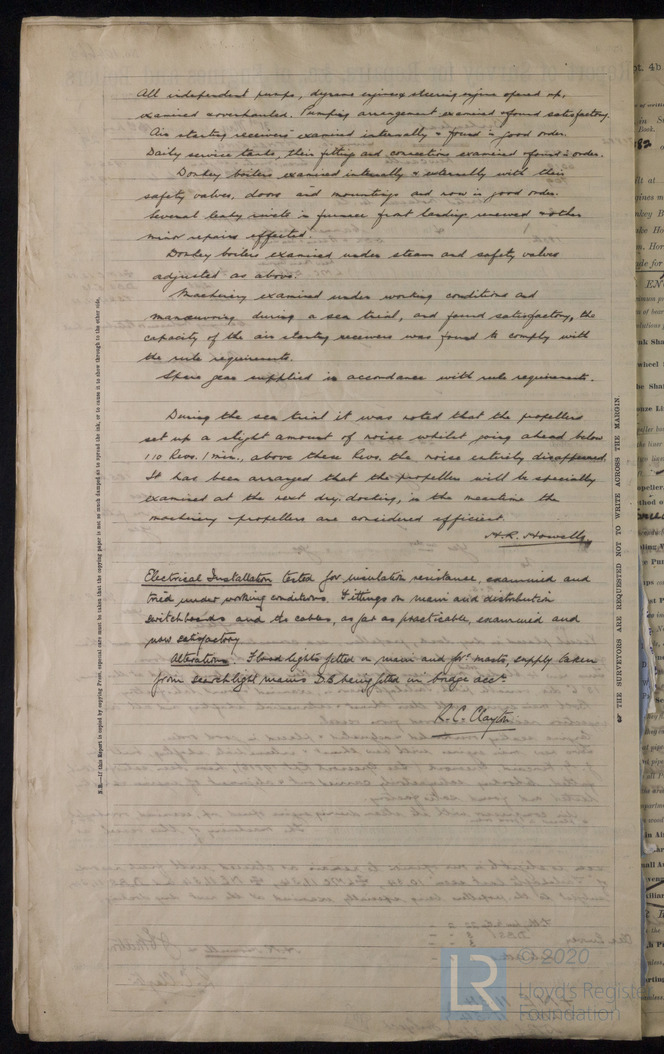 All independent pumps, dynamo engines & steering engine opened up,
examined & overhauled. Pumping arrangement examined & found satisfactory.
Air starting receivers examined internally & found in good order.
Daily service tanks, their fittings and connections examined & found in order.
Donkey boilers examined internally & externally with their
safety valves, doors and mountings and now in good order.
Several leaky rivets in furnace front landing renewed & other
minor repairs effected.
Donkey boilers examined under steam and safety valves
adjusted as above.
Machinery examined under working conditions and
manœuvring during a sea trial, and found satisfactory, the
capacity of the air starting receivers was found to comply with
the rule requirements.
Spare gear supplied in accordance with rule requirements.
During the sea trial it was noted that the propellers
set up a slight amount of noise whilst going ahead below
110 Revs. / min., above these Revs. the noise entirely disappeared.
It has been arranged that the propellers will be specially
examined at the next dry-docking, in the meantime the
machinery & propellers are considered efficient.
H.R. Howells
Electrical Installation tested for insulation resistance, examined and
tried under working conditions. Fittings on main and distribution
switchboards and the cables, as far as practicable, examined and
now satisfactory
Alterations. Flood lights fitted on main and for'd masts, supply taken
from searchlight mains D.B being fitted in bridge acct.
R.C. Clayton
N.B.—If this Report is copied by copying Press, especial care must be taken that the copying paper is not so much damped as to spread the ink, or to cause it to show through to the other side.
THE SURVEYORS ARE REQUESTED NOT TO WRITE ACROSS THE MARGIN.
LR
© 2020
Lloyd's Register
Foundation